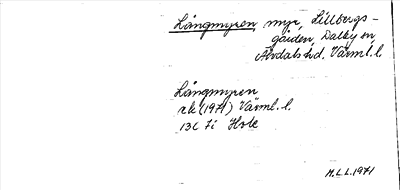 Långmyren, myr, Lillbergs-
gården, Dalby en,
Älvdals hd. Värml. l.
Långmyren
ek (1971) Värml. l.
13C 7i Hole
M.L.L. 1971